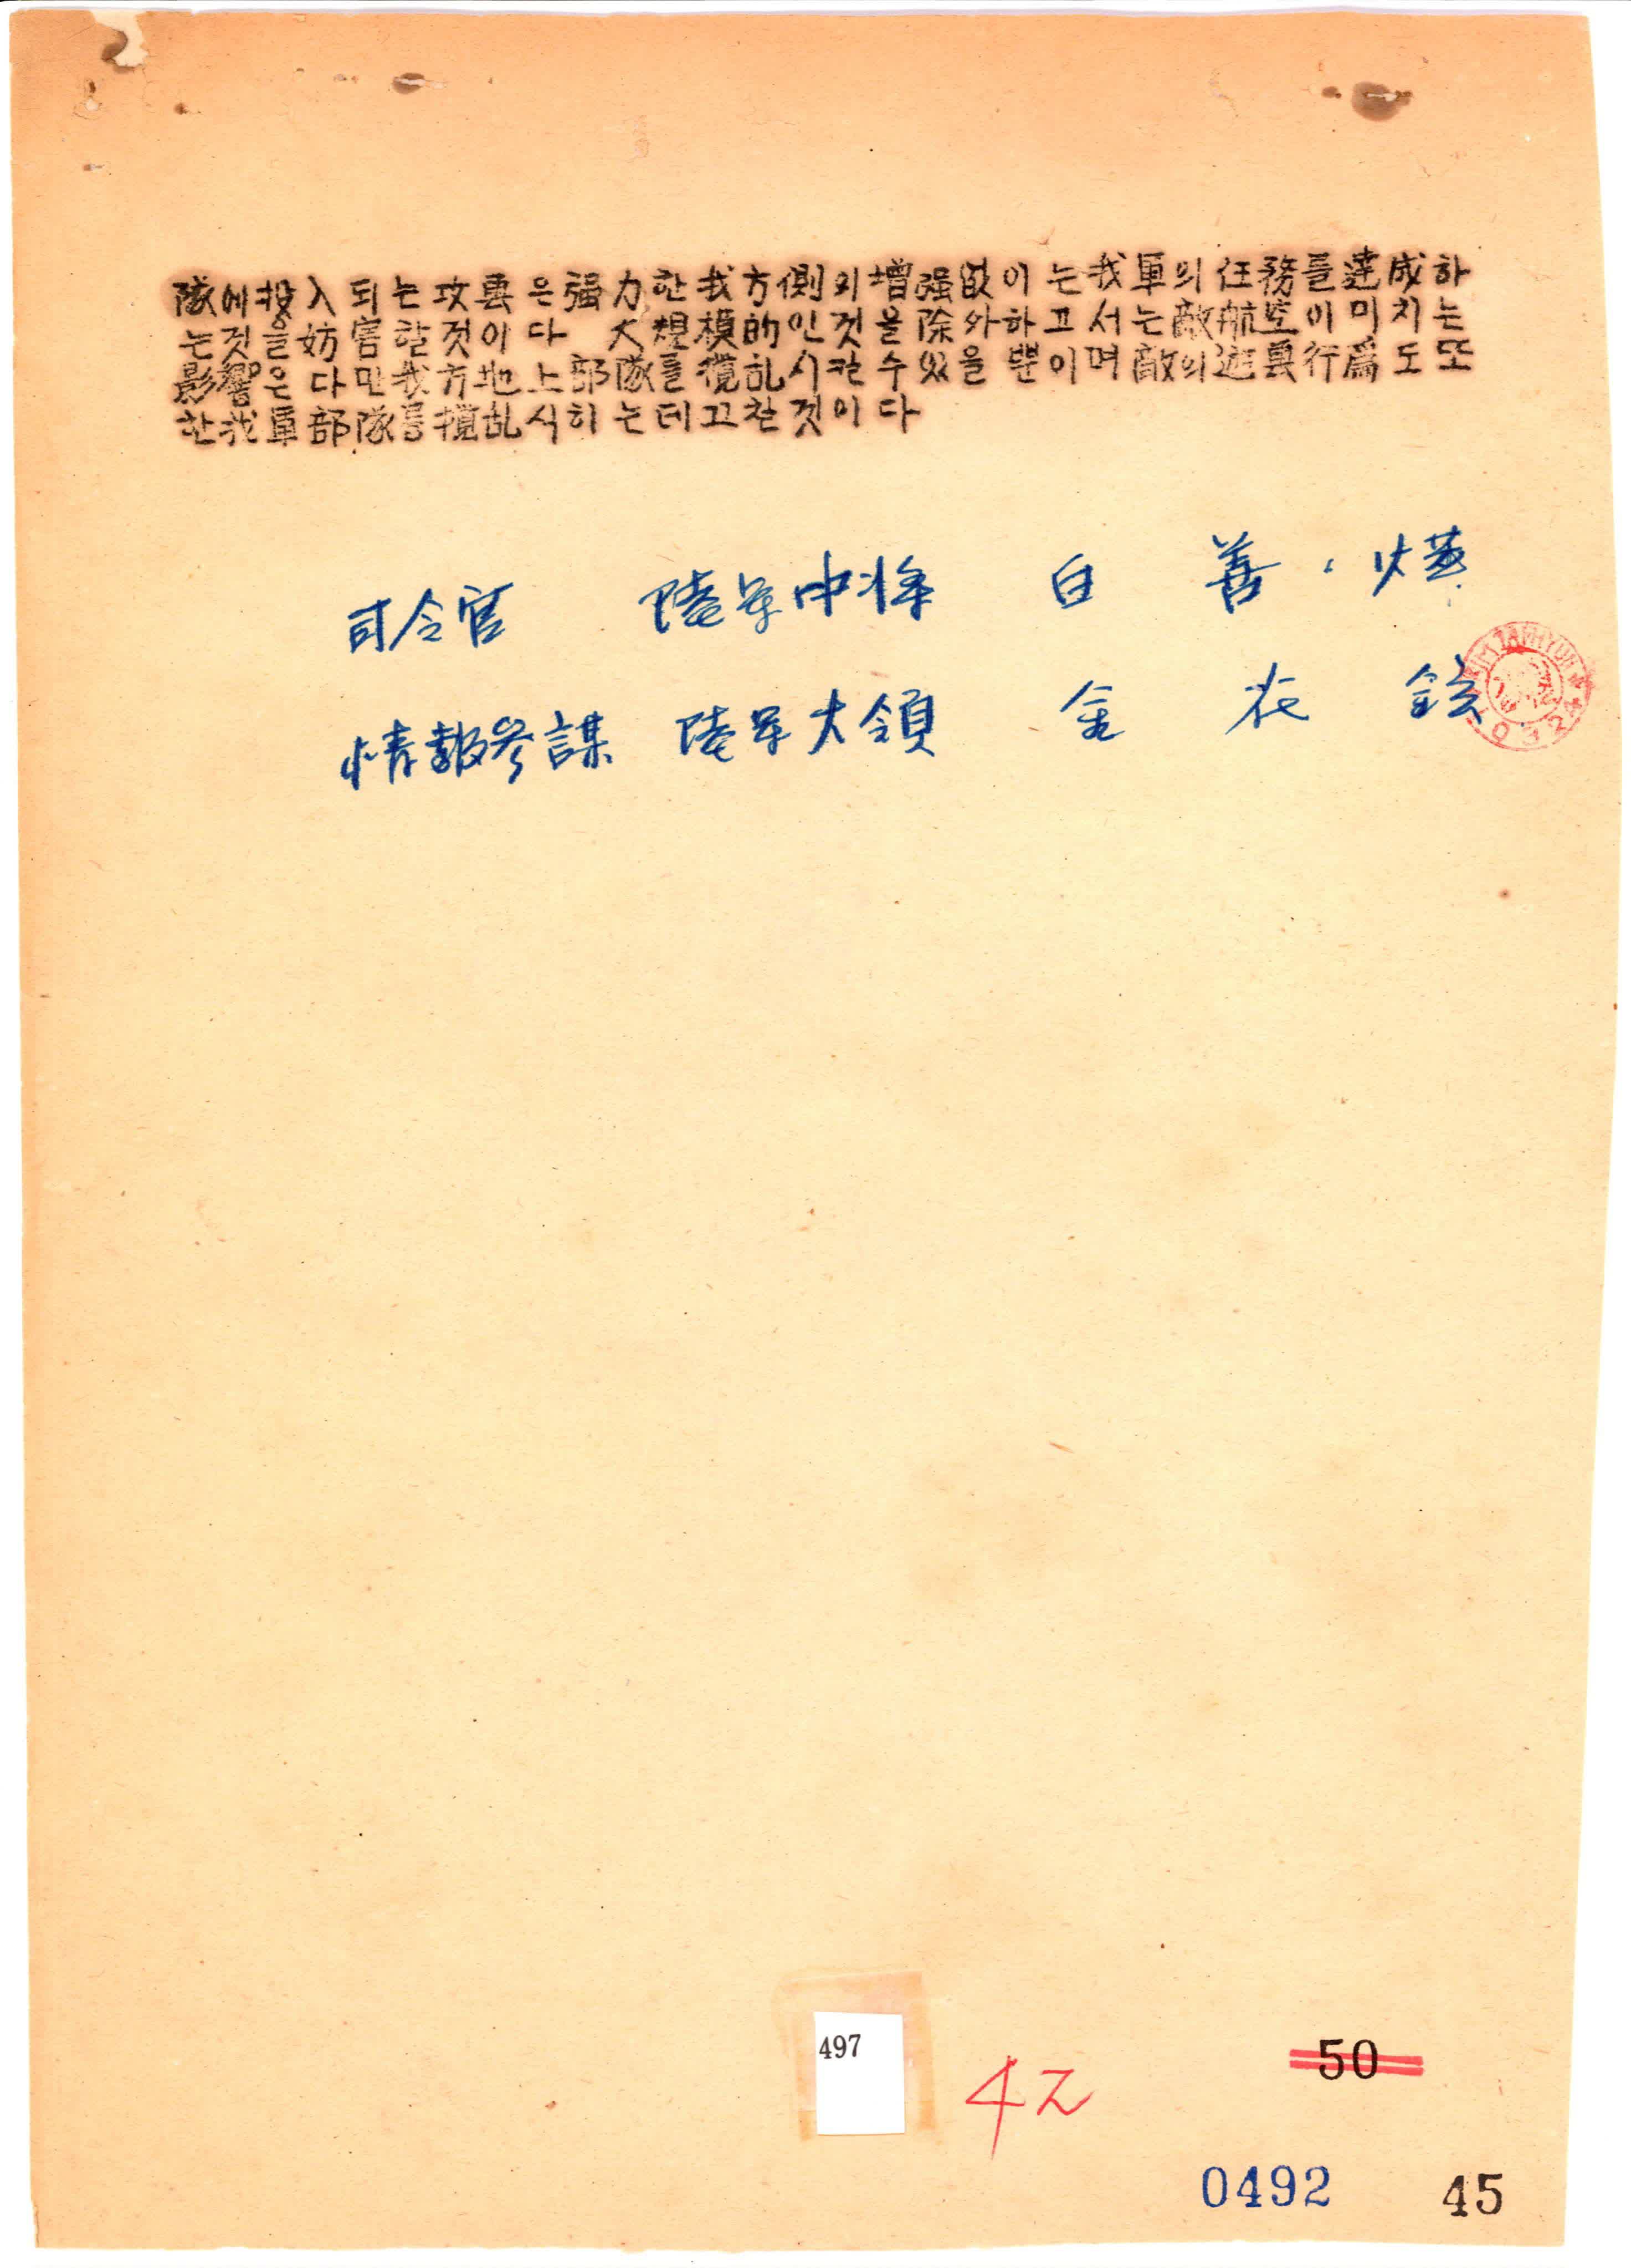 隊에投入되는攻擊은强力한我方側의增强없이는我軍의任務를達成하
는것을妨害할것이다 大規模的인것을除外하고서는敵航空이미치는
影響은다만我方地上部隊를攪乱시킬수있을뿐이며敵의遊擊行爲도또
한我軍部隊를攪乱시히는데끄칠것이다
司令官 陸軍中将 白 善 燁
情報參謀 陸軍大領 金 在 鉉
497
42
50
0492 45